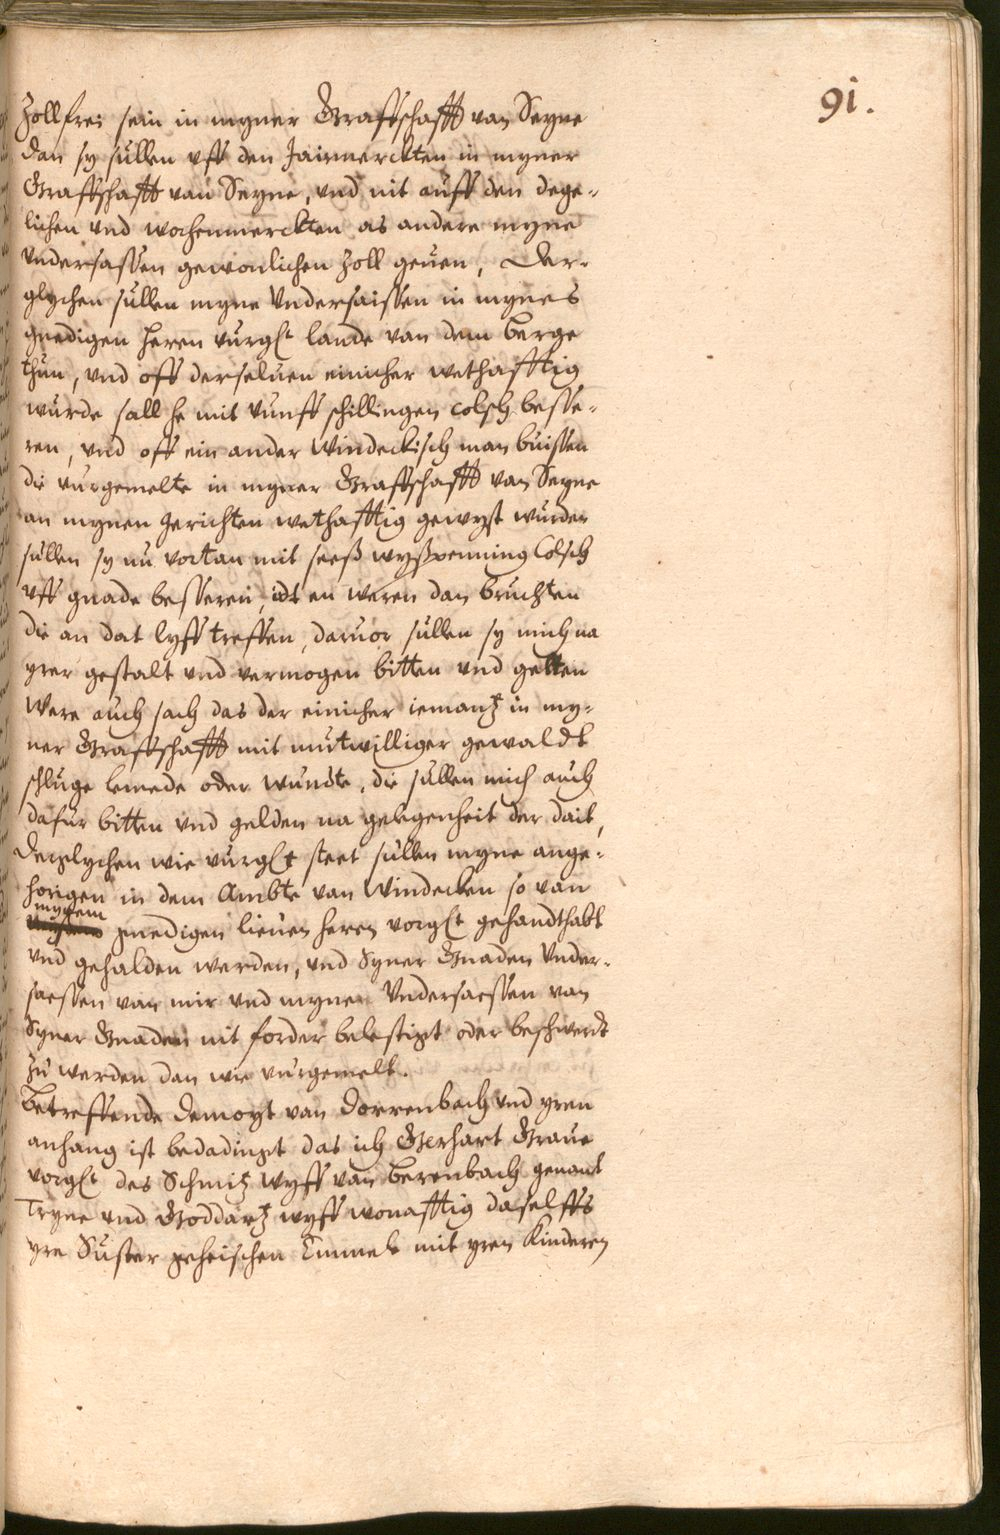 91.
Zollfrei sein in myner Graffschafft van Seyne
dan sy sullen vff den Jairmerckten in myner
Graffschafft van Seyne, vnd nit auff den dege-
lichen vnd wochenmerckten as andere myne
vndersassen gewonlichen Zoll geuen, Der-
glychen sullen myne Vndersaissen in mynes
gnedigen Heren vurgt lande van dem Berge
thun, vnd off derseluen einicher wethafftig
wurde sall he mit vunff schillingen colsch besse-
ren, vnd off ein ander Windeckisch man buissen
die vurgemelte in myner Graffschafft van Seyne
an mynen gerichten wethafftig gewyst wurden
sullen sy nu vortan mit seeß wyßpenning Colsch
vff gnade besseren, idt en weren dan bruchten
die an dat lyff treffen, daruor sullen sy mich na
yrer gestalt vnd vermogen bitten vnd gelten
Were auch sach das der einicher iemantz in my-
ner Graffschafft mit mutwilliger gewaldt
schluge lemede oder wundte, die sullen mich auch
dafur bitten vnd gelden na gelegenheit der dait,
Derglychen wie vurgt steet sullen myne ange-
horigen in dem Ambte van Windecken so van
mynem gnedigen lieuen heren vorgt gehandthabt
vnd gehalden werden, vnd Syner Gnaden Vnder-
saessen van mir vnd mynen Vndersaessen van
Syner Gnaden nit forder belestigt oder beschwerdt
zu werden dan wie vurgemelt.
Betreffende Demoyt van Dorrenbach vnd yren
anhang ist bedadingt das ich Gerhart Graue
vorgt des Schmitz wyff van Berenbach genant
Tryne vnd Goddartz wyff wonafftig daselffs
yre Suster geheischen Emmel mit yren Kinderen